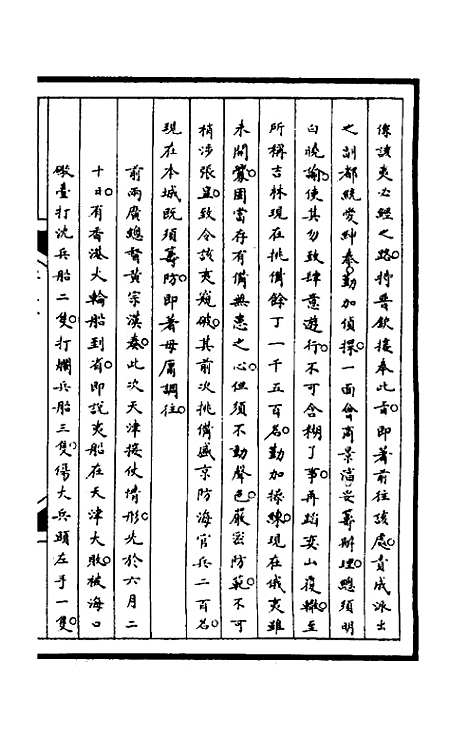 係該夷必經之路特普欽接奉此旨即著前往該處責成派出
之副都統愛紳泰勤加偵探一面會商景淳妥籌辦理總須明
白曉諭使其勿致肆意遊行不可含糊了事再蹈奕山覆轍至
所稱吉林現在挑備餘丁一千五百名勤加操練現在俄夷雖
未開釁固當存有備無患之心但須不動聲色嚴密防範不可
稍涉張皇致令該夷窺破其前次挑備盛京防海官兵二百名
現在本城既須籌防即著毋庸調往
前兩廣總督黃宗漢奏此次天津接仗情形先於六月二
十日有香港火輪船到省即說夷船在天津大敗被海口
礮臺打沈兵船二隻打爛兵船三隻傷大兵頭左手一隻